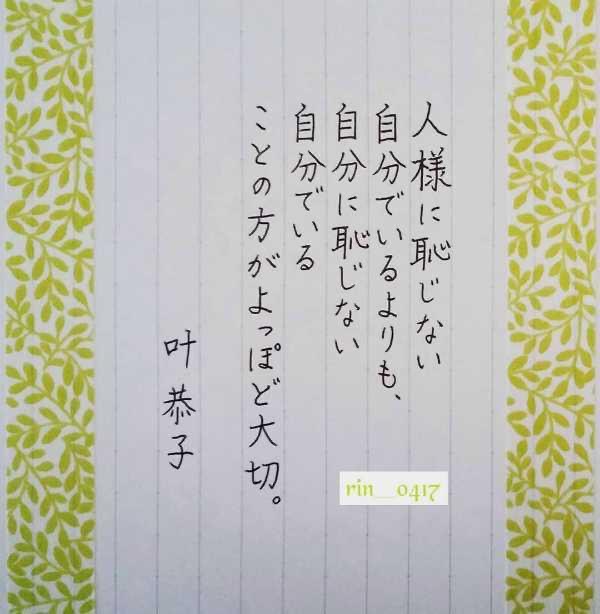 人様に恥じない
自分でいるよりも、
自分に恥じない
自分でいる
ことの方がよっぽど大切。
叶 恭子
rin__0417